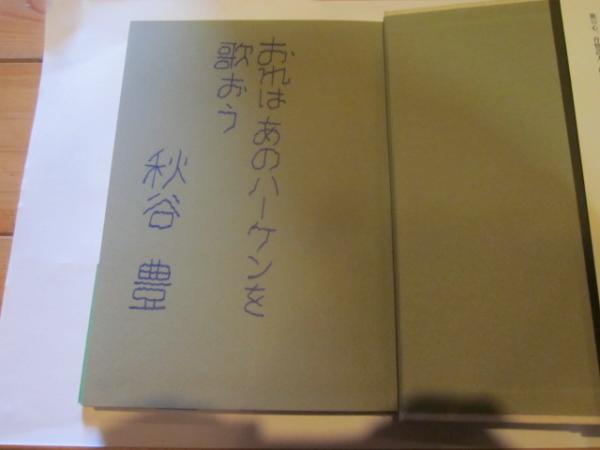 おれは あのハーケンを
歌おう
秋谷 豊